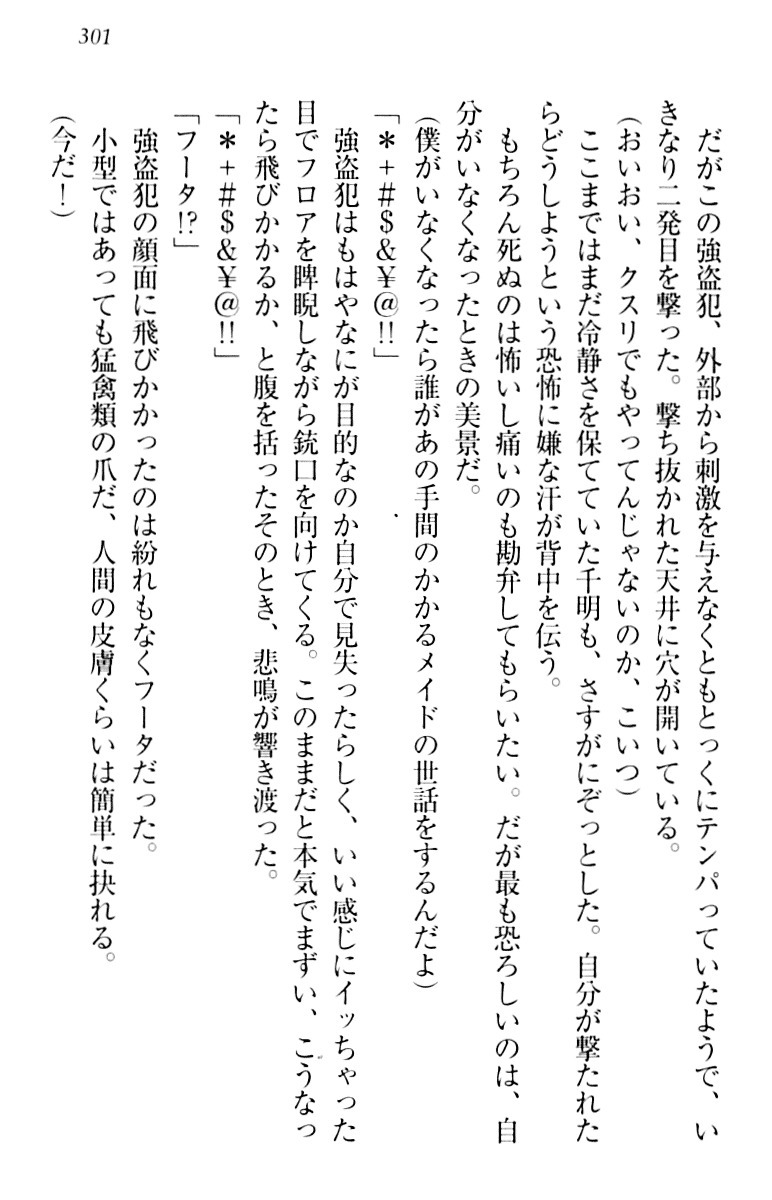 301
だがこの強盗犯、外部から刺激を与えなくともとっくにテンパっていたようで、い
きなり二発目を撃った。撃ち抜かれた天井に穴が開いている。
(おいおい、クスリでもやってんじゃないのか、こいつ)
ここまではまだ冷静さを保てていた千明も、さすがにぞっとした。自分が撃たれた
らどうしようという恐怖に嫌な汗が背中を伝う。
もちろん死ぬのは怖いし痛いのも勘弁してもらいたい。だが最も恐ろしいのは、自
分がいなくなったときの美景だ。
(僕がいなくなったら誰があの手間のかかるメイドの世話をするんだよ)
「＊+#$&¥@!!」
強盗犯はもはやなにが目的なのか自分で見失ったらしく、いい感じにイッちゃった
目でフロアを睥睨しながら銃口を向けてくる。このままだと本気でまずい、こうなっ
たら飛びかかるか、と腹を括ったそのとき、悲鳴が響き渡った。
「＊+#$&¥@!!」
「フータ!?」
強盗犯の顔面に飛びかかったのは紛れもなくフータだった。
小型ではあっても猛禽類の爪だ、人間の皮膚くらいは簡単に抉れる。
(今だ!)